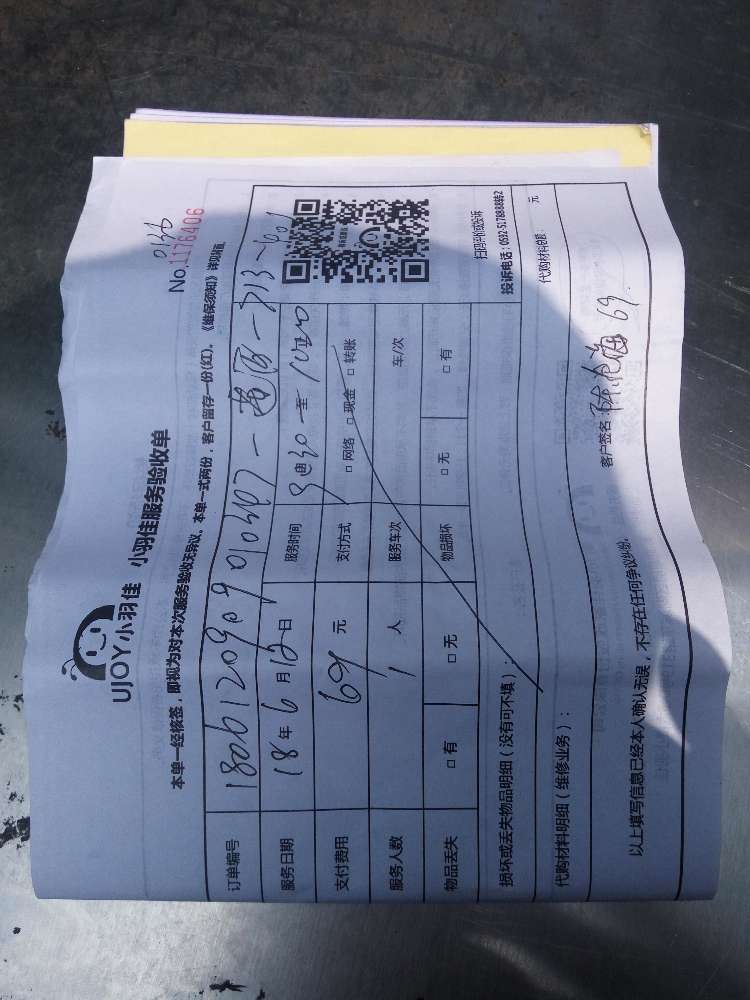 UJOY小羽佳 小羽佳服务验收单
0133
No.1176406
本单一经核签，即视为对本次服务验收无异议。本单一式两份，客户留存一份(红)。《维保须知》详见背面
订单编号 180612090901030
服务日期 18年6月12日 服务时间
支付费用 69元 支付方式 □网络 □现金 □转账
服务人数 1人 服务车次 车/次
物品丢失 □有 □无 物品损坏 □无 □有
扫码评价或投诉
投诉电话：0592-5178888转2
损坏或丢失物品明细（没有可不填）：
代购材料明细（维修业务）： 代购材料总额： 元
以上填写信息已经本人确认无误，不存在任何争议纠纷。 客户签名： 69